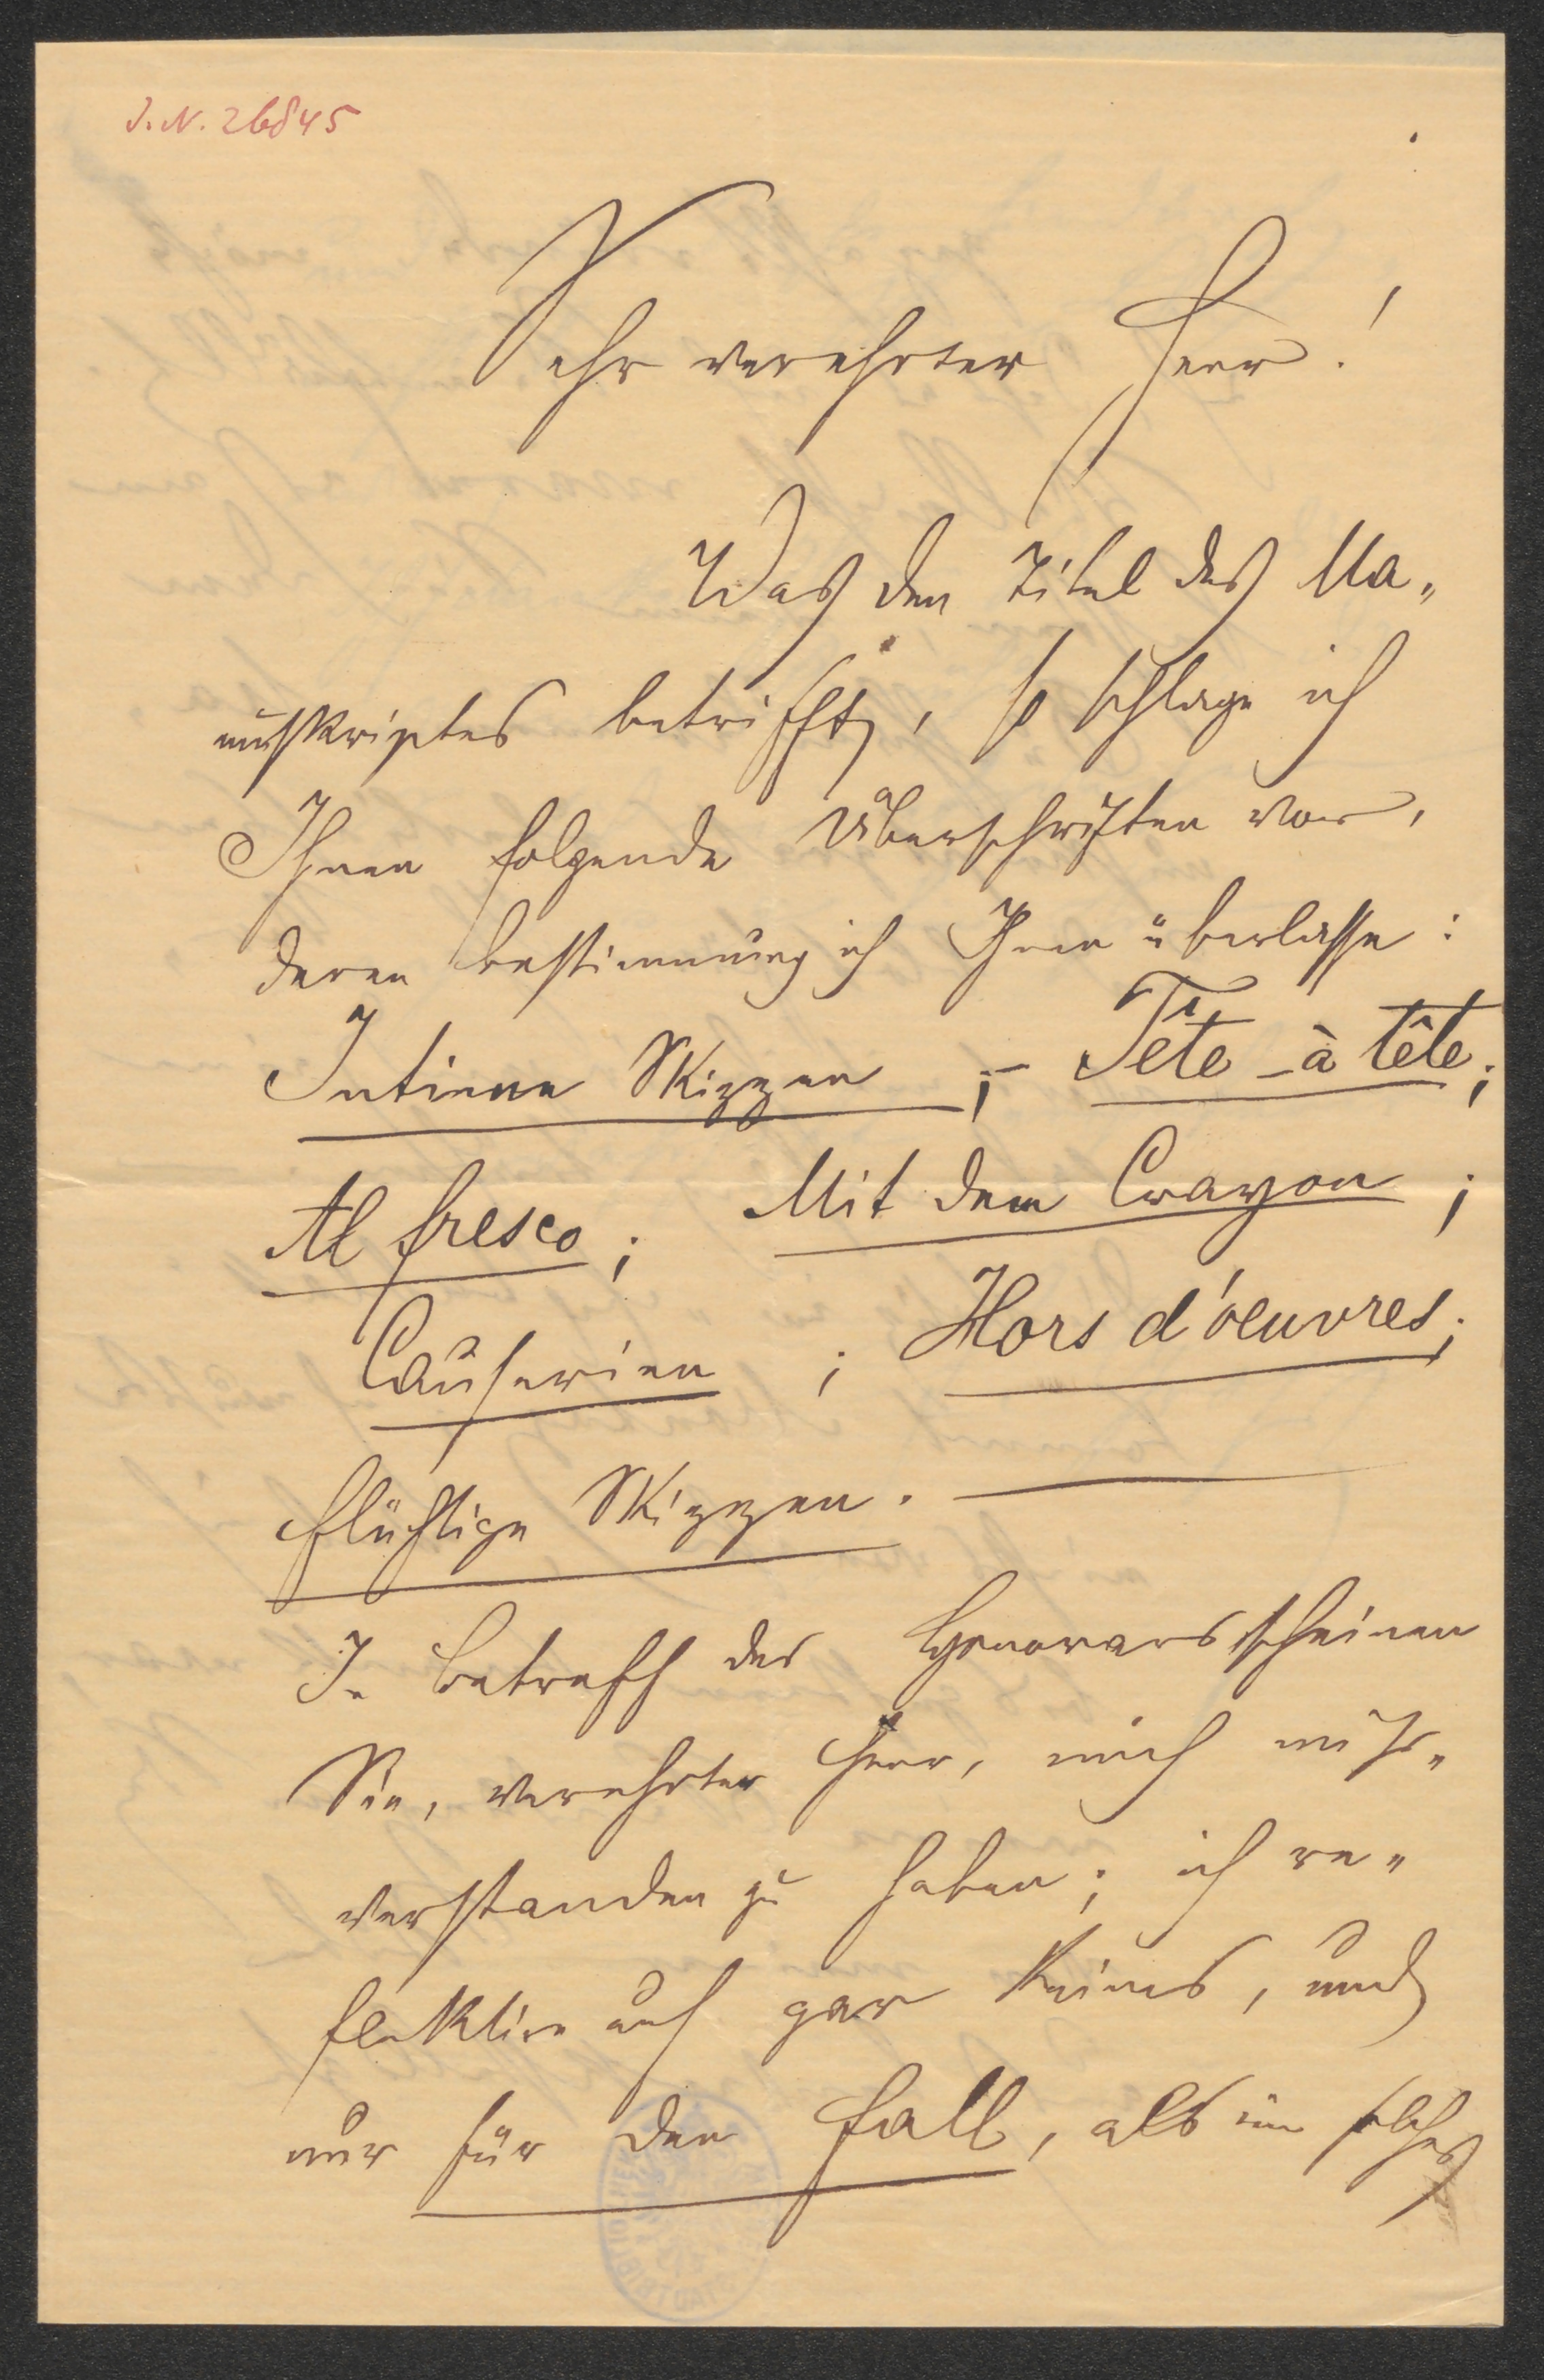 J. N. 26845
Sehr verehrter Herr!
Was den Titel des Ma„
nuskriptes betrifft, so schlage ich
Ihnen folgende Überschriften vor,
deren Bestimmung ich Ihnen überlasse:
Intime Skizzen ;– Tête-à tête;
Al fresco; Mit dem Crayon ;
Causerien ; Hors d'oeuvres;
flüchtige Skizzen. —
In Betreff des Honorars scheinen
Sie, verehrter Herr, mich miß„
verstanden zu haben; ich re„
flektire auf gar keines, und
nur für den Fall, als ein solches